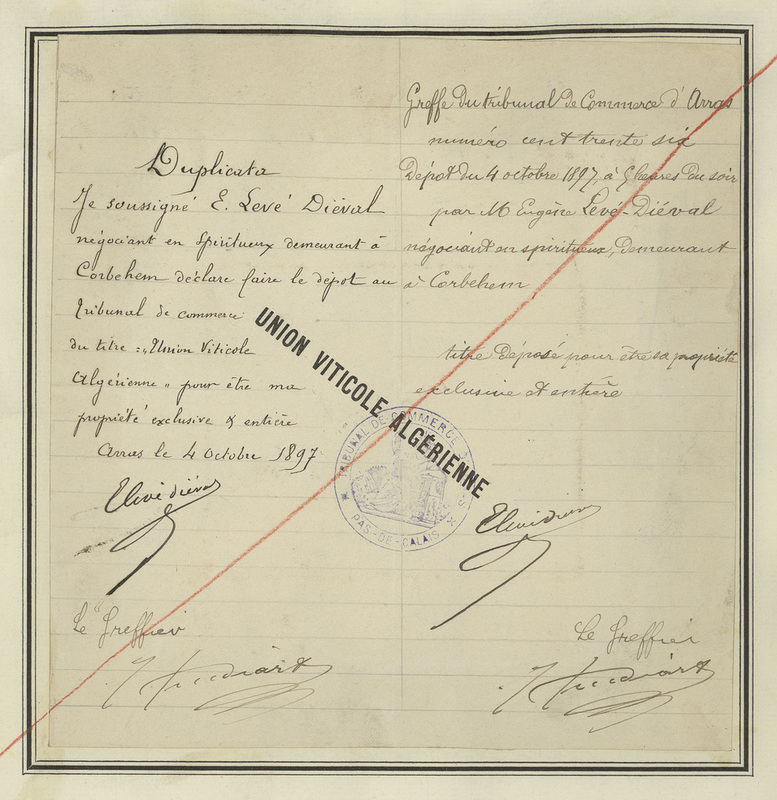 Duplicata
Je soussigné E. Levé Diéval
négociant en Spiritueux demeurant à
Corbehem déclare faire le dépot au
tribunal de commerce
du titre :„Union Viticole
Algérienne „ pour être ma
propriété exclusive & entière
Arras le 4 Octobre 1897
ELevé diéval
Le Greffier
Greffe du tribunal de Commerce d'Arras
numéro cent trente six
Dépot du 4 octobre 1897, à heures du soir
par M Eugène Levé-Diéval
négociant en spiritueux, demeurant
à Corbehem
titre déposé pour être sa propriété
exclusive et entière
UNION VITICOLE ALGÉRIENNE
TRIBUNAL DE COMMERCE D'ARRAS
PAS-DE-CALAIS
ELevé diéval
Le Greffier